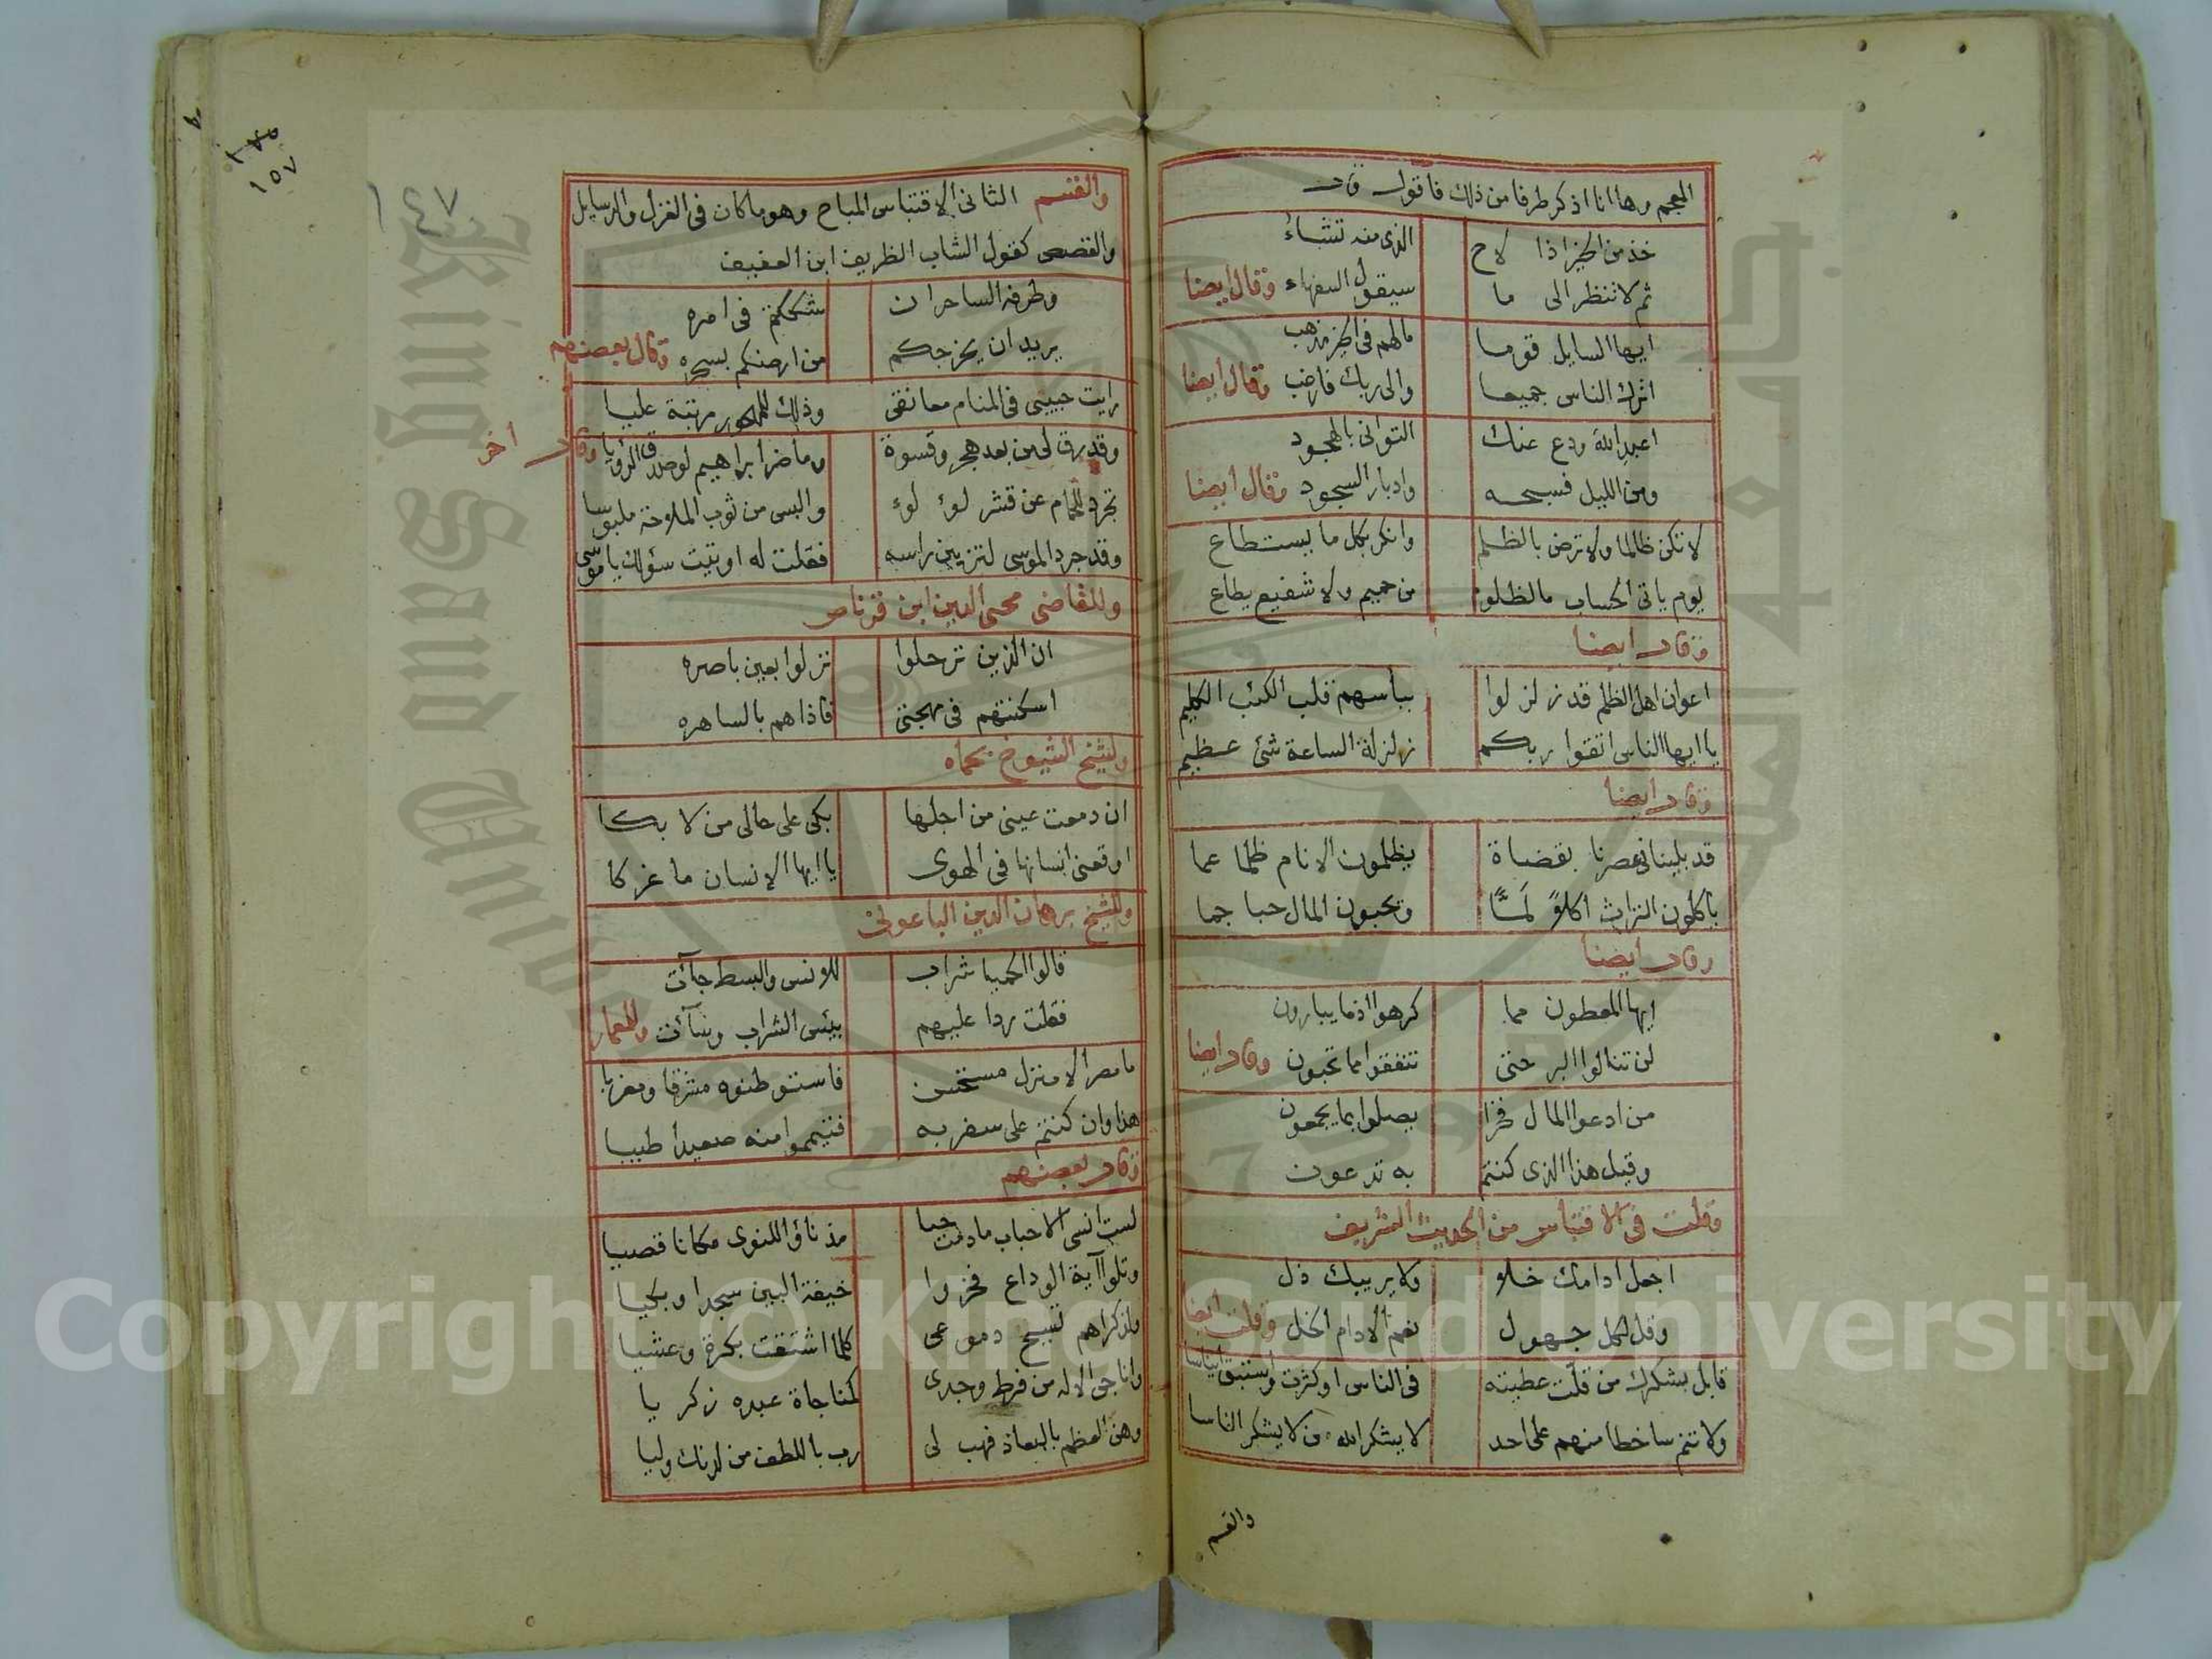 المعجم وها انا اذكر طرفا من ذلك فاقول قال
خذ من الخير اذا لاح الذى منه تشاء
ثم لا تنظر الى ما سيقول السفهاء وقال ايضا
ايها السايل قوما ما لهم فى الخير مذهب
اترك الناس جميعا والى ربك فارغب وقال ايضا
اعبد الله ودع عنك التوانى بالهجود
ومن الليل فسبحه وادبار السجود وقال ايضا
لا تكن ظالما ولا ترض بالظلم وانكر بكل ما يستطاع
يوم ياتى الحساب ما لظلوم من حميم ولا شفيع يطاع
وقال ايضا
اعوان اهل الظلم قد زلزلوا بباسهم قلب الكئب الكليم
يا ايها الناس اتقوا ربكم زلزلة الساعة شئ عظيم
وقال ايضا
قد بلينا فى عصرنا بقضاة يظلمون الانام ظلما عما
ياكلون التراث اكلاً لمّاً وتحبون المال حبا جما
وقال ايضا
ايها المعطون مما كرهوا اذ ما يبارون
لن تنالوا البر حتى تنفقوا مما تحبون وقال ايضا
من ادعوا المال فخرا يصلوا بما يجمعون
وقيل هذا الذى كنتم به تدعون
وقلت فى الاقتباس من الحديث الشريف
اجعل ادامك خلا ولا يريبك ذل
وقل لكل جهول نعم الادام الخل وقلت ايضا
قابل بشكرك من قلت عطيته فى الناس او كثرت
ولا تنم ساخطا منهم على احد لا يشكر الله من لا يشكر الناسا
والقسم
١٥٧
١٤٧
والقسم الثانى الاقتباس المباح وهو ما كان فى الغزل والرسايل
والقصص كقول الشاب الظريف ابن العفيف
وطرفه الساحران شككتم فى امره
يريد ان يخرجكم من ارضكم بسحره وقال بعضهم
رايت حبيبى فى المنام معانقى وذلك للمهجور مرتبة عليا
وقد رق لى من بعد هجر وقسوة وما ضر ابراهيم لو صدق الرؤيا وقال اخر
تجرد للحمام عن قشر لؤلؤ والبس من ثوب الملاحة ملبوسا
وقد جرد الموسى لتزيين راسه فقلت له اوتيت سؤلك يا موسى
وللقاضى محيى الدين ابن قرناص
ان الذين ترحلوا نزلوا بعين باصره
اسكنتهم فى مهجتى فاذا هم بالساهره
ولشيخ الشيوخ بحماه
ان دمعت عينى من اجلها بكى على حالى من لا بكا
اوقعنى انسانها فى الهوى يا ايها الانسان ما غركا
وللشيخ برهان الدين الباعونى
قالوا الحميا شراب للانس والبسط جآئت
فقلت ردا عليهم بيئس الشراب وسآئت وللمعمار
ما مصر الا منزل مستحسن فاستوطنوه مشرقا ومغربا
هذا وان كنتم على سفر به فتيمموا منه صعيدا طيبا
وقال بعضهم
لست انسى الاحباب ما دمت حيا مذ ناؤ اللنوى مكانا قصيا
وتلوا آية الوداع فخروا خيفة البين سجدا وبكيا
ولذكراهم تسيح دموعى كلما اشتقت بكرة وعشيا
واناجى الاله من فرط وجدى كمناجاة عبده زكريا
وهن العظم بالبعاد فهب لى رب باللطف من لدنك وليا
Copyright © King Saud University
King Saud University